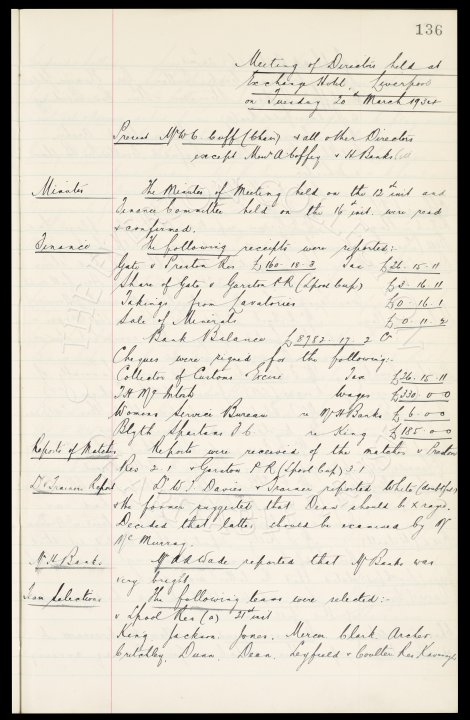 136
Meeting of Directors held at
Exchange Hotel, Liverpool
on Tuesday 20th March 1934
Present Mr W C Cuff (Chair) & all other Directors
except Messrs A Coffey & H Banks
Minutes The Minutes of Meeting held on the 13th inst and
Finance Committee held on the 16th inst. were read
& confirmed.
Finance The following receipts were reported:-
Gate v Preston Res £160-18-3 Tax £26-15-11
Share of Gate v Garston P.R (Lpool Cup) £2-16-11
Takings from Lavatories £0-16-1
Sale of Minerals £0-11-2
Bank Balance £8782-17-2 Cr
Cheques were signed for the following:-
Collector of Customs & Excise Tax £26-15-11
T.H McIntosh Wages £330-0-0
Womens Service Bureau re Mr H Banks £6-0-0
Blyth Spartans F.C re King £185-0-0
Reports of Matches Reports were received of the matches v Preston
Res 2.1 & Garston P.R (Lpool Cup) 3.1
Dr & Trainers Report Dr W. J Davies & Trainer reported White (doubtful)
& the former suggested that Dean should be x rayed.
Decided that latter should be examined by Mr
McMurray.
Mr H Banks. Mr A Wade reported that Mr Banks was
very bright.
Team Selections The following teams were selected:-
v Lpool Res (a) 21st inst
King Jackson. Jones. Mercer Clark Archer
Critchley. Dunn. Dean. Leyfield & Coulter Res Kavanagh